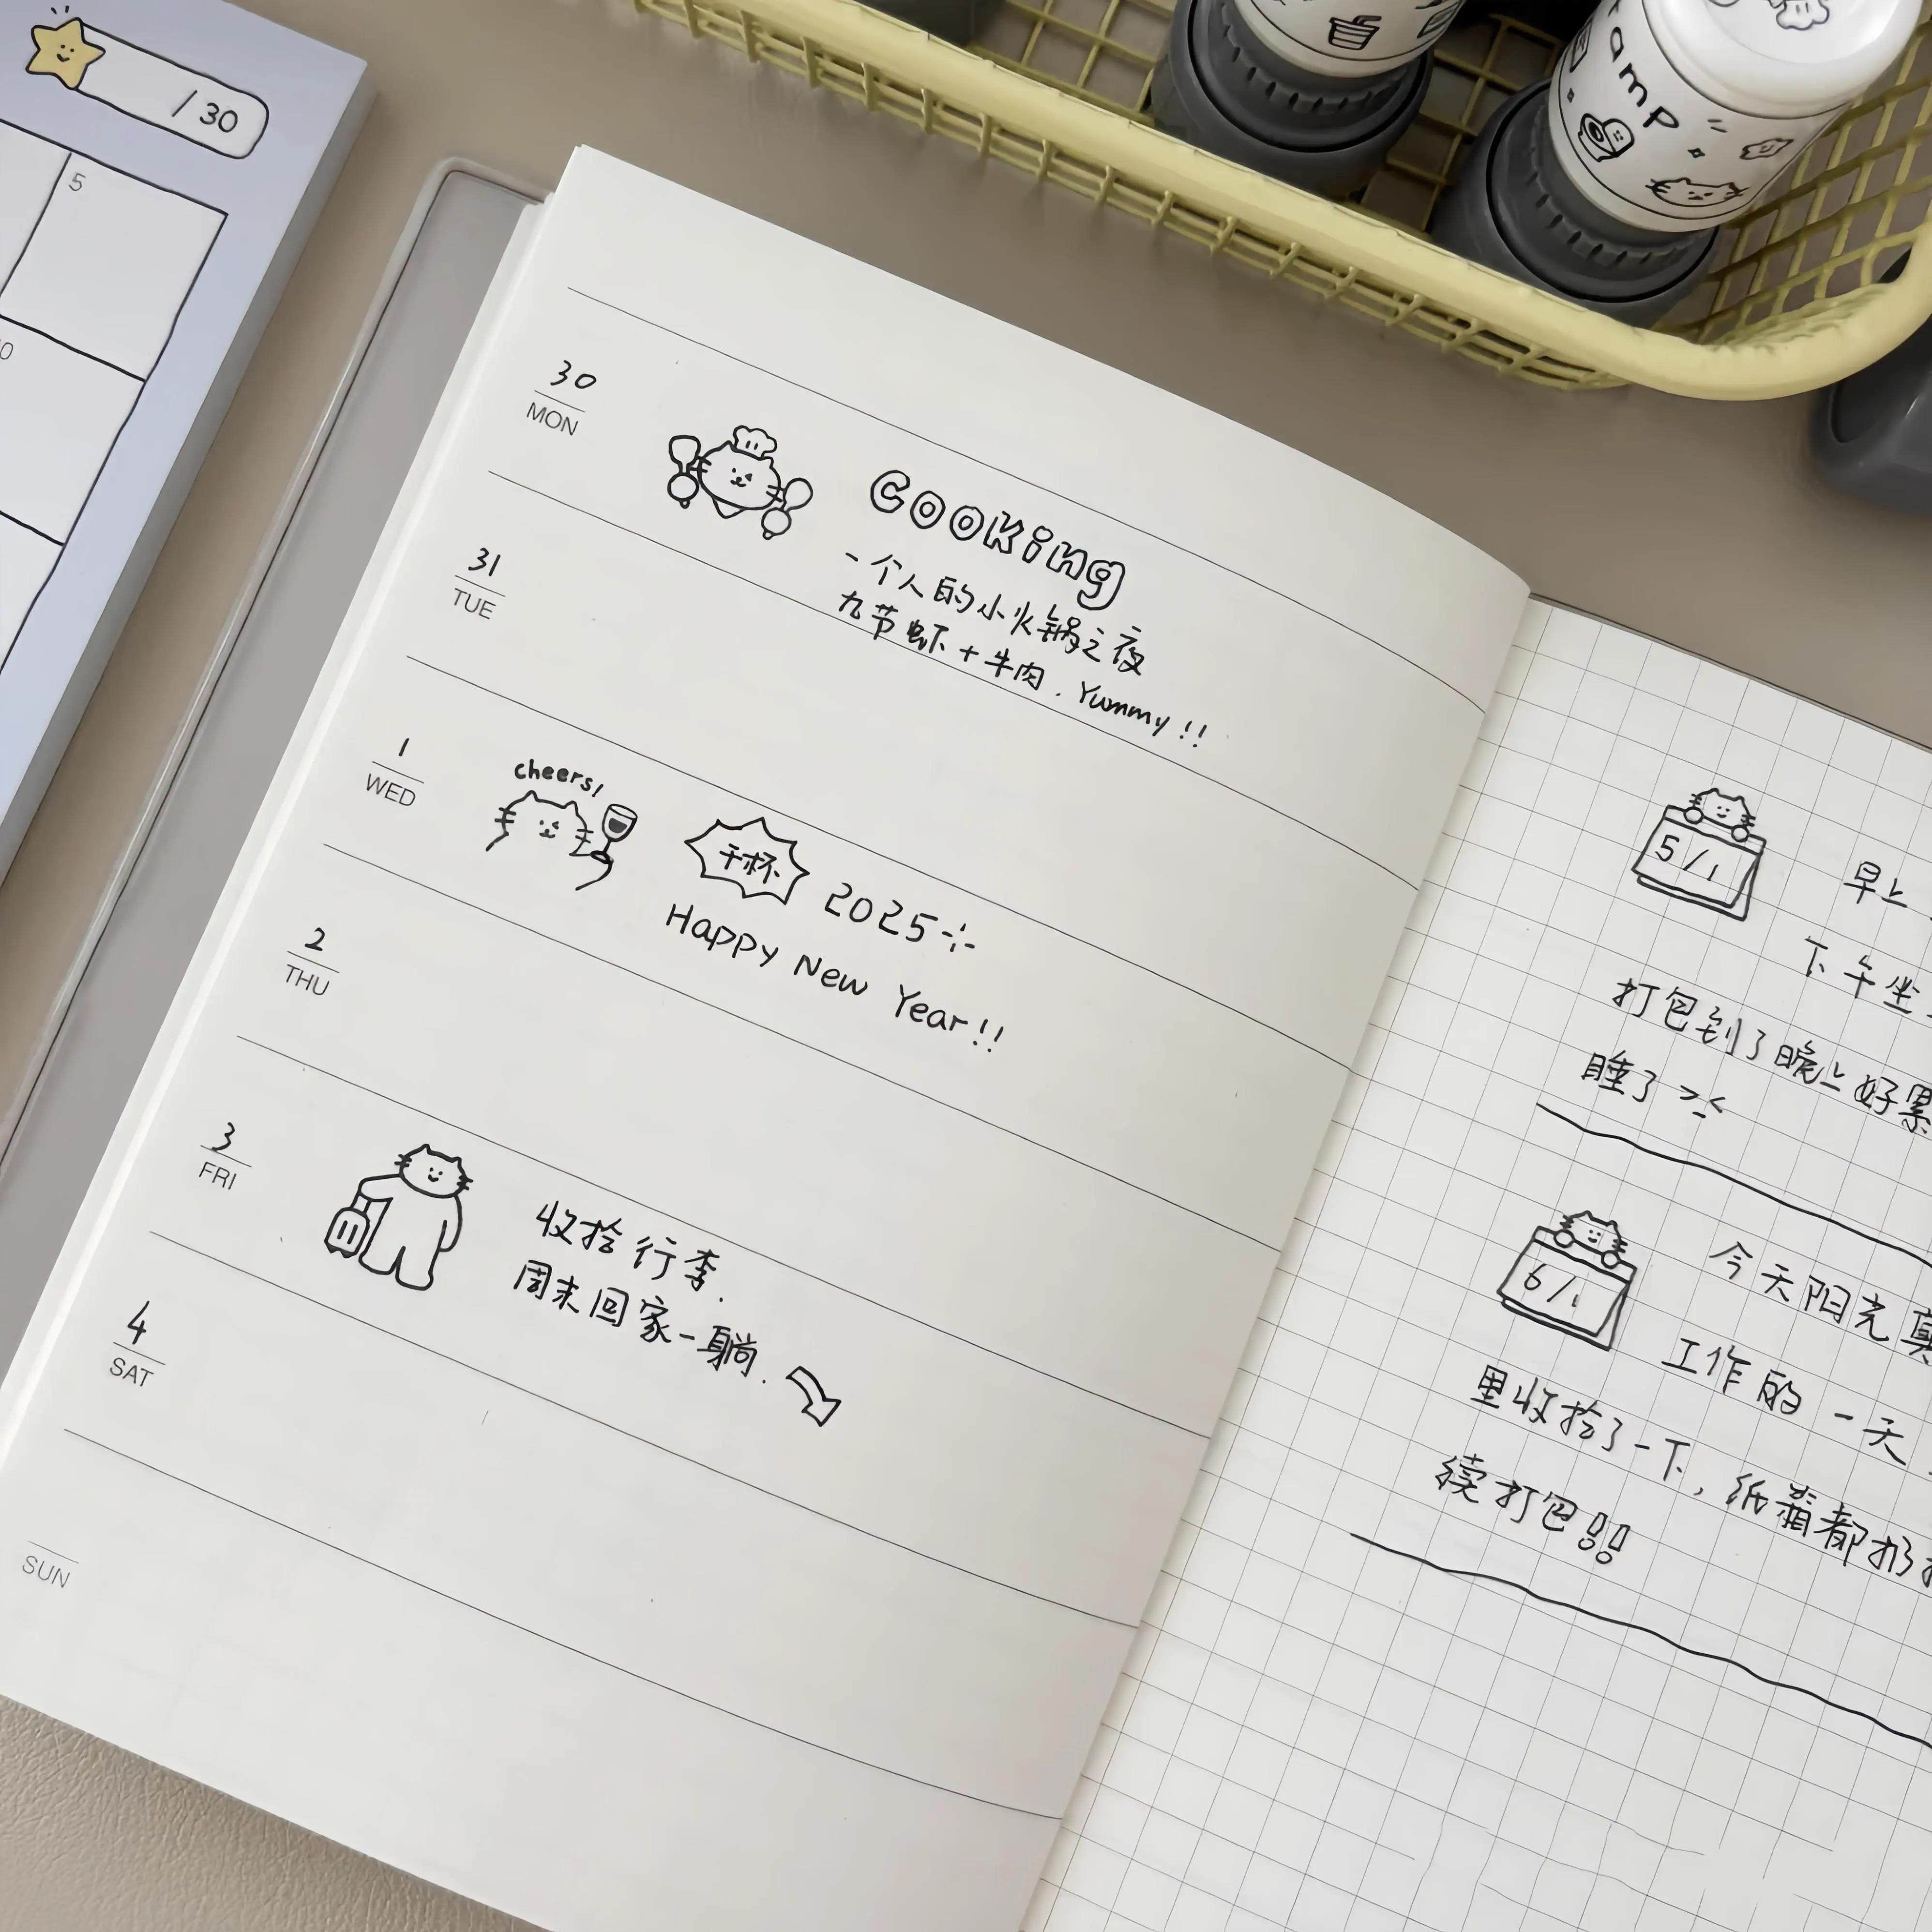 / 30
5
tamp
30
MON
Cooking
一个人的小火锅之夜
九节虾 + 牛肉. Yummy!!
31
TUE
1
WED
cheers!
干杯
2025
Happy New Year!!
2
THU
3
FRI
收拾行李.
周末回家一躺.
4
SAT
SUN
5/1
早上
下午坐
打包到了晚上好累
睡了
6/1
今天阳光真
工作的一天
里收拾了一下, 纸箱都扔
续打包!!